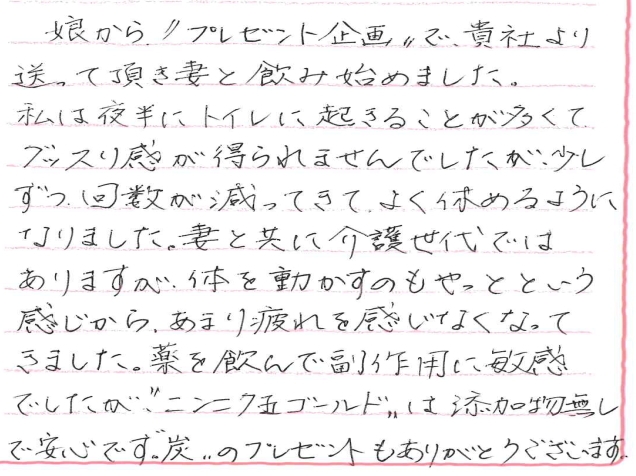 娘から〃プレゼント企画〃で、貴社より
送って頂き妻と飲み始めました。
私は夜半にトイレに起きることが多くて
グッスリ感が得られませんでしたが、少し
ずつ回数が減ってきて、よく休めるように
なりました。妻と共に介護世代では
ありますが、体を動かすのもやっとという
感じから、あまり疲れを感じなくなって
きました。薬を飲んで副作用に敏感
でしたが〝ニンニク玉ゴールド〟は添加物無し
で安心です。〝炭〟のプレゼントもありがとうございます。